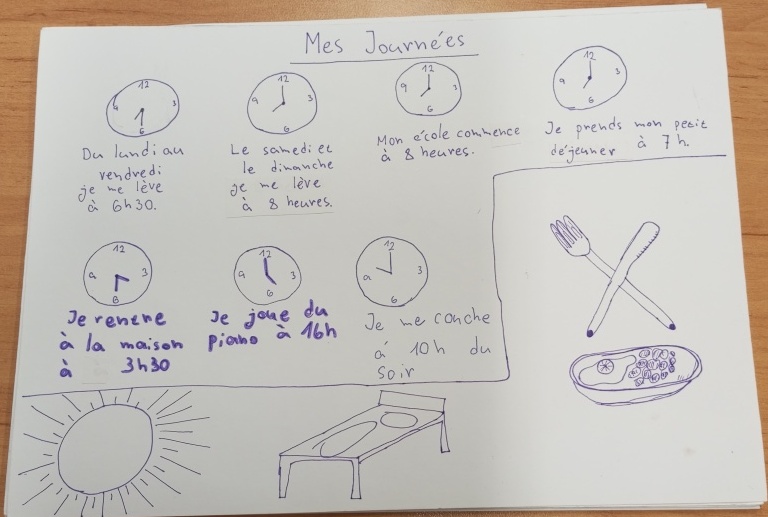 Mes Journées
12
3
6
9
Du lundi au
vendredi
je me lève
à 6h30.
12
9
3
6
Le samedi et
le dimanche
je me lève
à 8 heures.
12
9
3
6
Mon école commence
à 8 heures.
12
9
3
6
Je prends mon petit
déjeuner à 7h.
12
9
3
6
Je rentre
à la maison
à 3h30
12
9
3
6
Je joue du
piano à 16h
12
9
3
6
Je me couche
à 10h du
soir